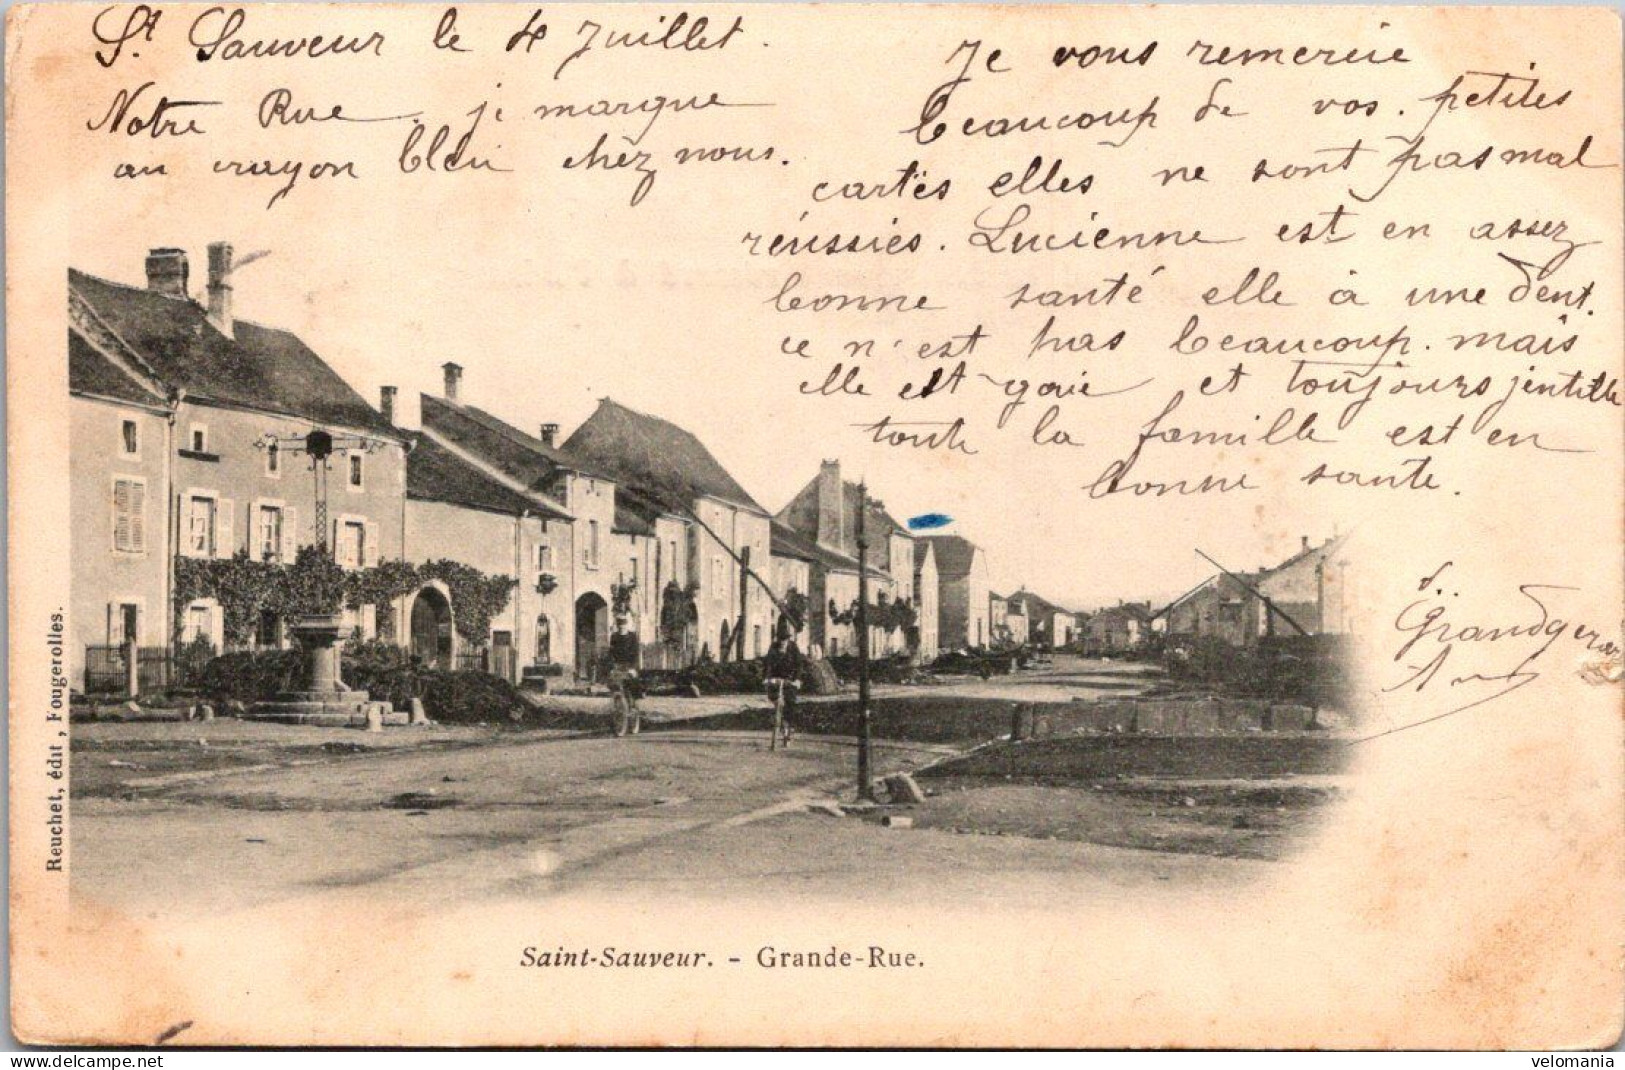 St. Sauveur le 4 Juillet.
Notre Rue. je marque
au crayon bleu chèz nous.
Je vous remercie
beaucoup de vos. petites
cartes elles ne sont pas mal
réussies. Lucienne est en assez
bonne santé elle à une dent.
ce n'est pas beaucoup. mais
elle est gaie et toujours jentille
toute la famille est en
bonne sante.
Saint-Sauveur. - Grande-Rue.
Reuchet, édit, Fougerolles.
www.delcampe.net
velomania